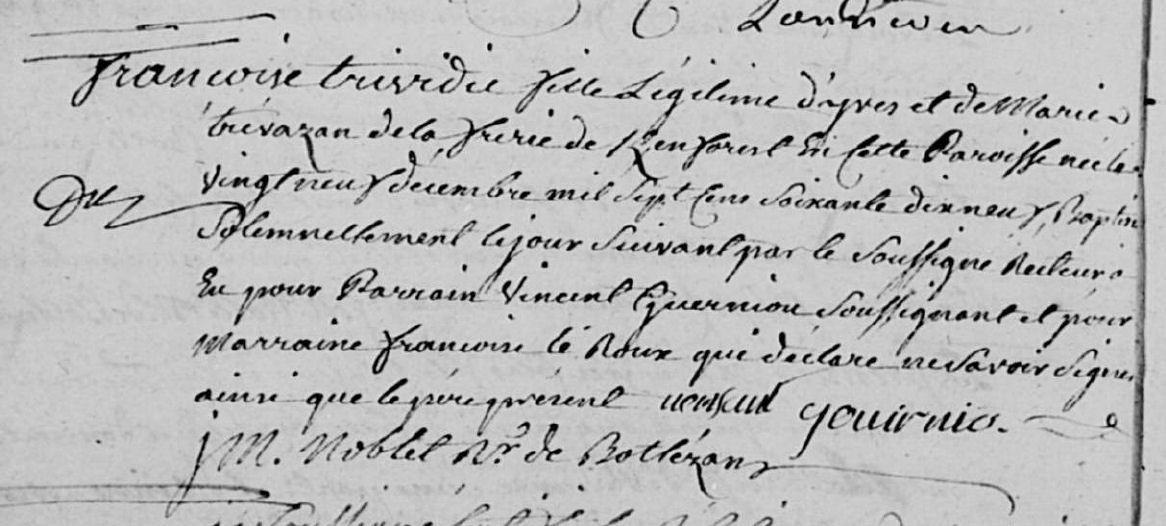 francoise trividic fille Légitime d'yves et de Marie
trévazan de la frerie de Kenforest En Cette Paroisse née le
vingt neuf décembre mil sept Cens soixante dix neuf, Baptisé
Solemnellement le jour suivant par le soussigné Recteur
Eu pour Parrain Vincent Guerniou soussignant et pour
Marraine francoise le Roux qui déclare ne savoir signer
ainsi que le père présent
J M. Noblet Rr. de Botlézan